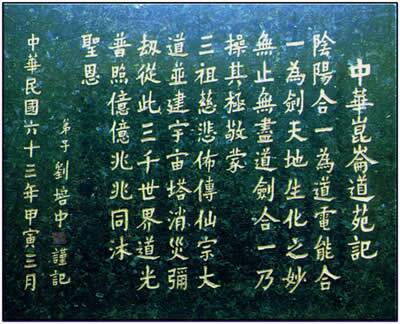 中華崑崙道苑記
陰陽合一為道電能合
一為劍天地生化之妙
無止無盡道劍合一乃
操其極敬蒙
三祖慈悲佈傳仙宗大
道並建宇宙塔消災彌
劫從此三千世界道光
普照億億兆兆同沐
聖恩
弟子劉培中謹記
中華民國六十三年甲寅三月